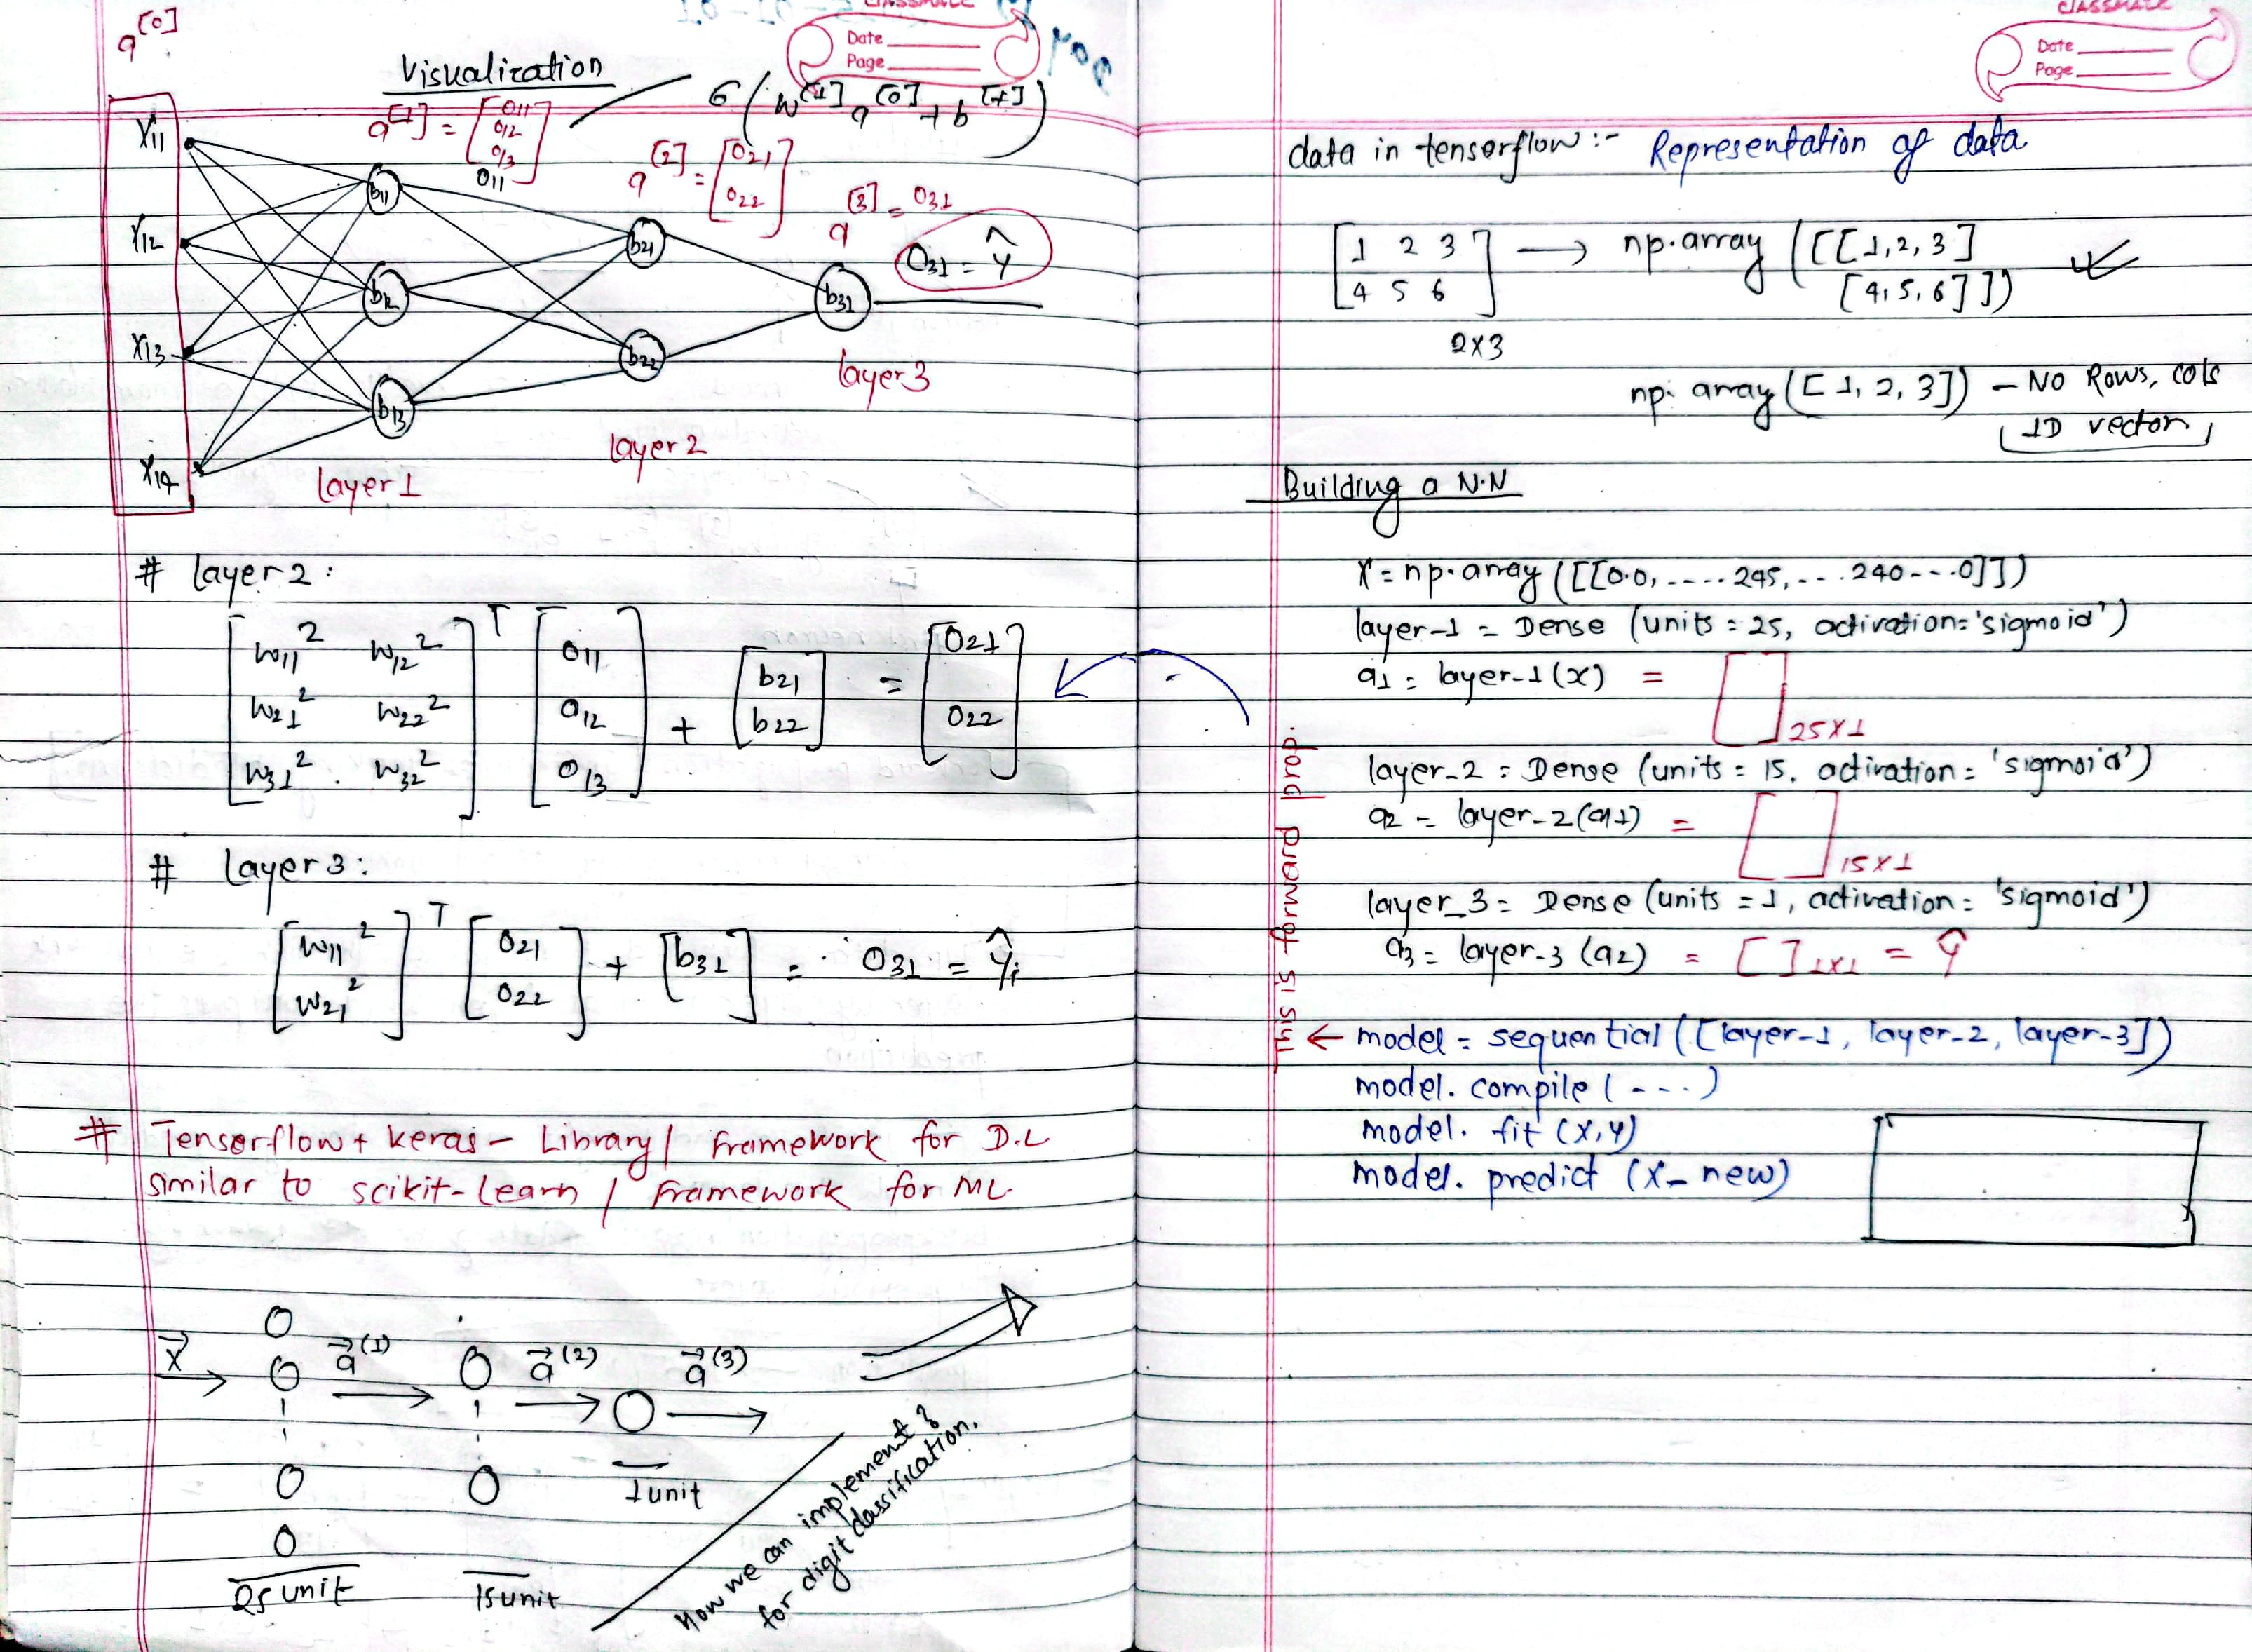 a[0]
Visualization
CLASSMATE
Date
Page
a[1] = [O11 O12 O13 O11]
σ(W[1] a[0] + b[1])
a[2] = [O21 O22]
a[3] = O31
O31 = ŷ
X11
X12
X13
X14
b11
b12
b13
b21
b22
b31
layer 1
layer 2
layer 3
# layer 2:
[w11² w12²]T [O11] + [b21] = [O21]
[w21² w22²] [O12] [b22] [O22]
[w31² w32²] [O13]
# layer 3:
[w11²]T [O21] + [b31] = O31 = ŷi
[w21²] [O22]
# Tensorflow + keras - Library / framework for D.L
similar to scikit-Learn / framework for ML
x⃗
a⃗(1)
a⃗(2)
a⃗(3)
25 unit
15 unit
1 unit
How we can implement
for digit classification.
CLASSMATE
Date
Page
data in tensorflow :- Representation of data
[1 2 3] → np.array([[1,2,3]
[4 5 6] [4,5,6]])
2x3
np. array([1, 2, 3]) - NO Rows, cols
1D vector
Building a N.N
X = np.array([[0.0, ---- 245, --- 240 --- 0]])
layer-1 = Dense (units = 25, activation = 'sigmoid')
a1 = layer-1(x) = [ ] 25x1
layer-2 = Dense (units = 15, activation = 'sigmoid')
a2 = layer-2(a1) = [ ] 15x1
layer_3 = Dense (units = 1, activation = 'sigmoid')
a3 = layer-3 (a2) = [ ] 1x1 = ŷ
this is forward prop.
← model = sequential ([layer-1, layer-2, layer-3])
model. compile (---)
model. fit (x,y)
model. predict (x_new)